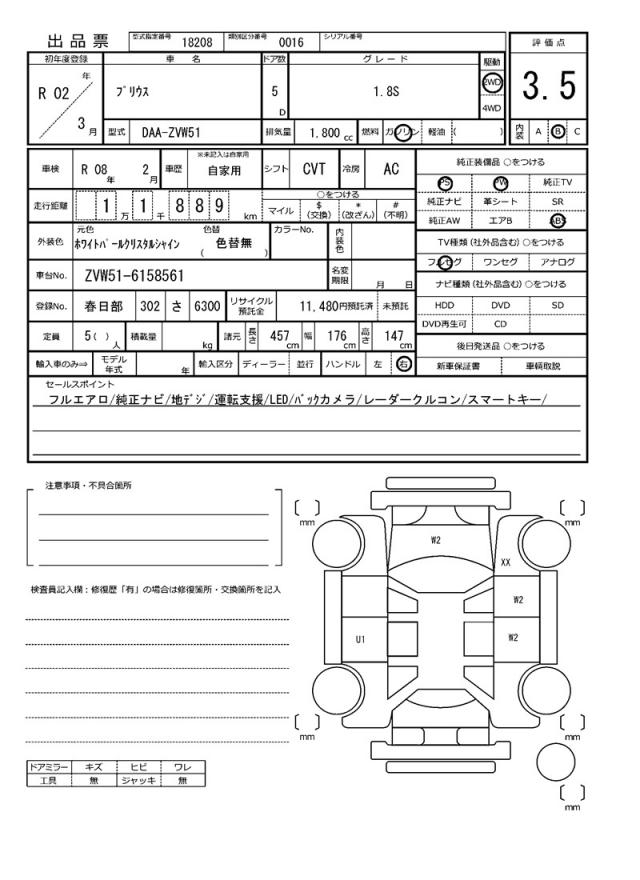 出品票 型式指定番号 18208 類別区分番号 0016 シリアル番号
評価点
3.5
初年度登録 車名 ドア数 グレード 駆動
R 02 年 3 月 ﾌﾟﾘｳｽ 5 D 1.8S 2WD 4WD
型式 DAA-ZVW51 排気量 1.800 cc 燃料 ガソリン 軽油 ( )
内装 A B C
車検 R 08 年 2 月 車歴 ※未記入は自家用 自家用 シフト CVT 冷房 AC
走行距離 1 万 1 千 8 8 9 km
○をつける
マイル $(交換) *(改ざん) #(不明)
外装色 元色 ﾎﾜｲﾄﾊﾟｰﾙｸﾘｽﾀﾙｼｬｲﾝ 色替 ( 色替無 ) カラーNo. 内装色
車台No. ZVW51-6158561 名変期限 月 日
登録No. 春日部 302 さ 6300 リサイクル預託金 11,480円預託済 未預託
定員 5( )人 積載量 kg 諸元 長さ 457 cm 幅 176 cm 高さ 147 cm
輸入車のみ⇒ モデル年式 年 輸入区分 ディーラー 並行 ハンドル 左 右
純正装備品 ○をつける
PS PW 純正TV
純正ナビ 革シート SR
純正AW エアB ABS
TV種類(社外品含む) ○をつける
フルセグ ワンセグ アナログ
ナビ種類(社外品含む) ○をつける
HDD DVD SD
DVD再生可 CD
後日発送品 ○をつける
新車保証書 車輌取説
セールスポイント
フルエアロ/純正ナビ/地ﾃﾞｼﾞ/運転支援/LED/ﾊﾞｯｸカメラ/レーダークルコン/スマートキー/
注意事項・不具合箇所
検査員記入欄：修復歴「有」の場合は修復箇所・交換箇所を記入
ドアミラー キズ ヒビ ワレ
工具 無 ジャッキ 無
mm
mm
W2
XX
W2
U1
W2
mm
mm
mm